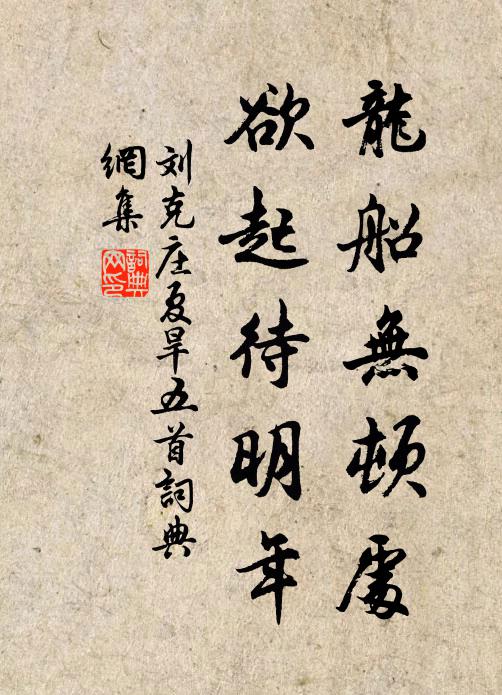 龍船無頓處
欲起待明年
刘克庄夏旱五首詞典
網集
詞典网印